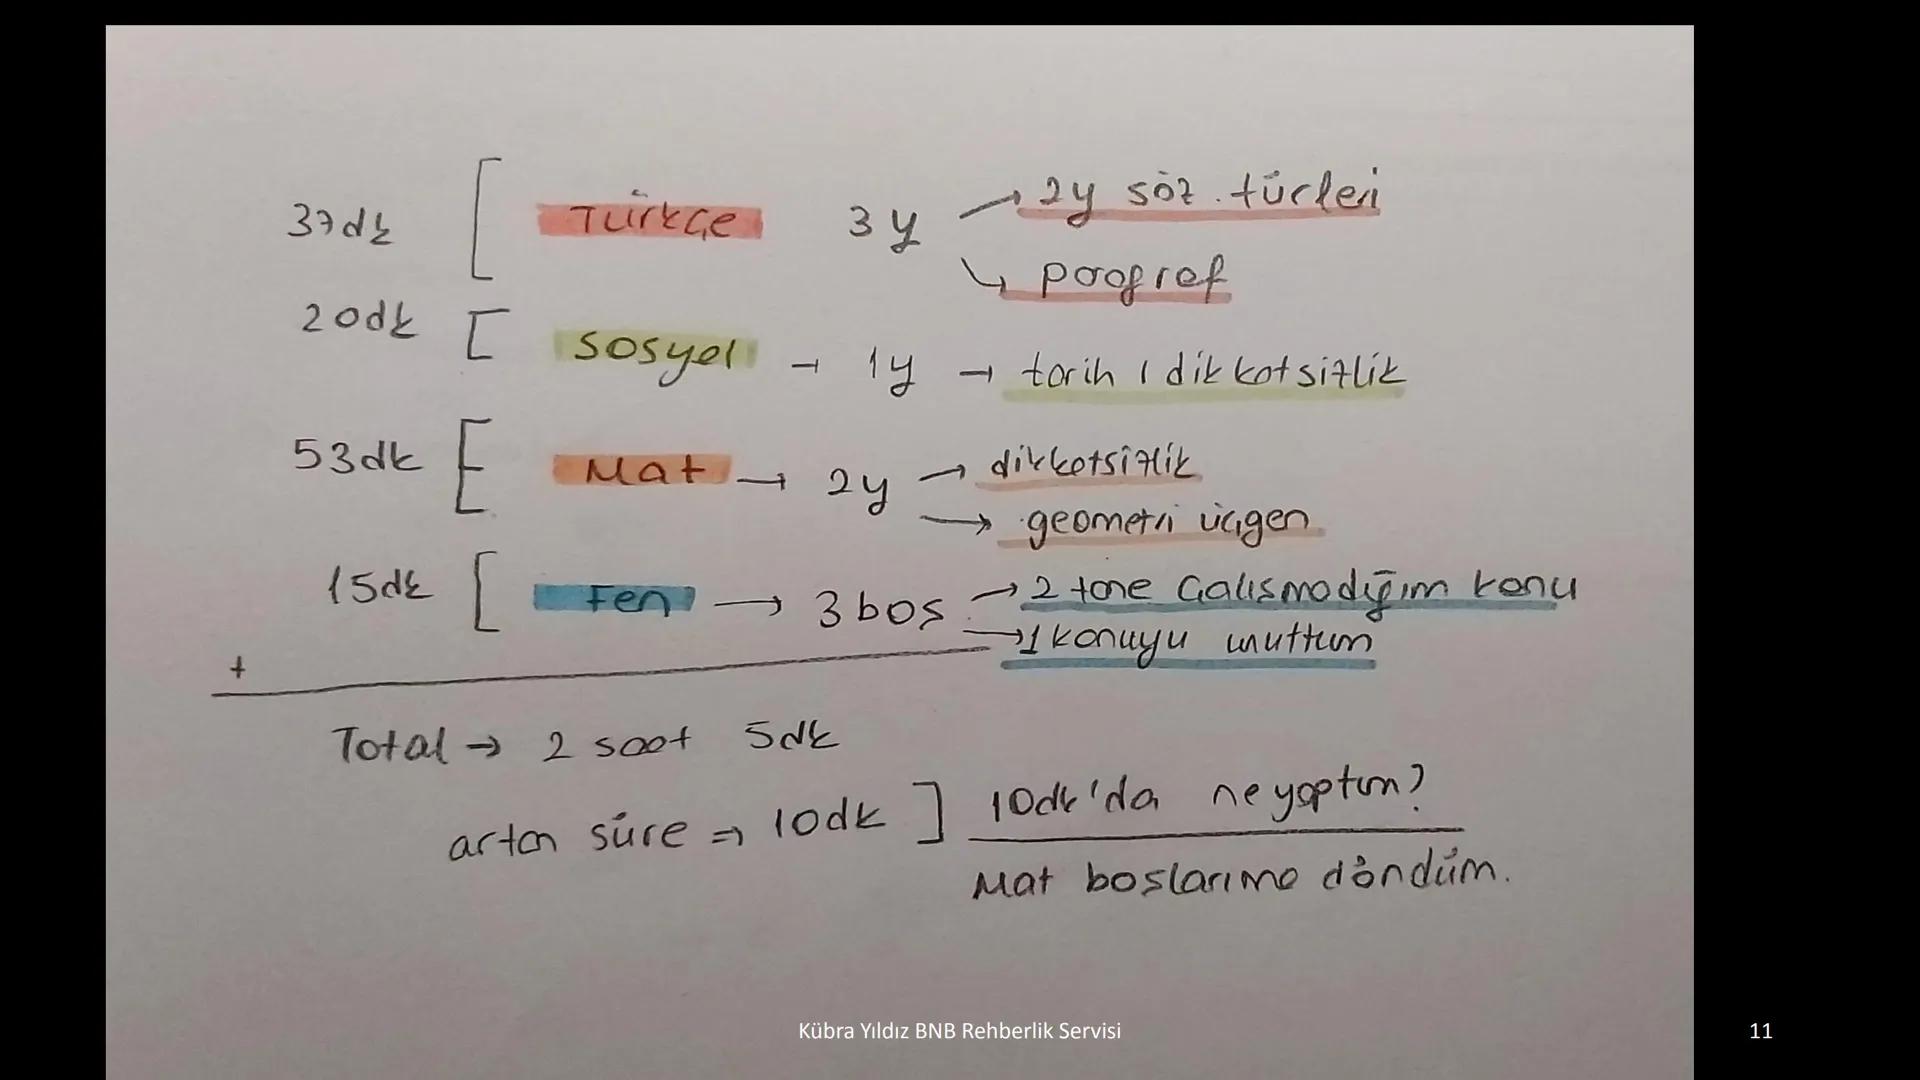 37dk [ Türkçe 3y → 2y söz. türleri
↳ paragraf
20dk [ Sosyal → 1y → tarih / dikkatsizlik
53dk [ Mat → 2y → dikkatsizlik
→ geometri üçgen
15dk [ Fen → 3 boş → 2 tane Çalışmadığım konu
→ 1 konuyu unuttum
+
Total → 2 saat 5dk
artan süre ⇒ 10dk ] 10dk'da ne yaptım?
Mat boşlarıma döndüm.
Kübra Yıldız BNB Rehberlik Servisi
11